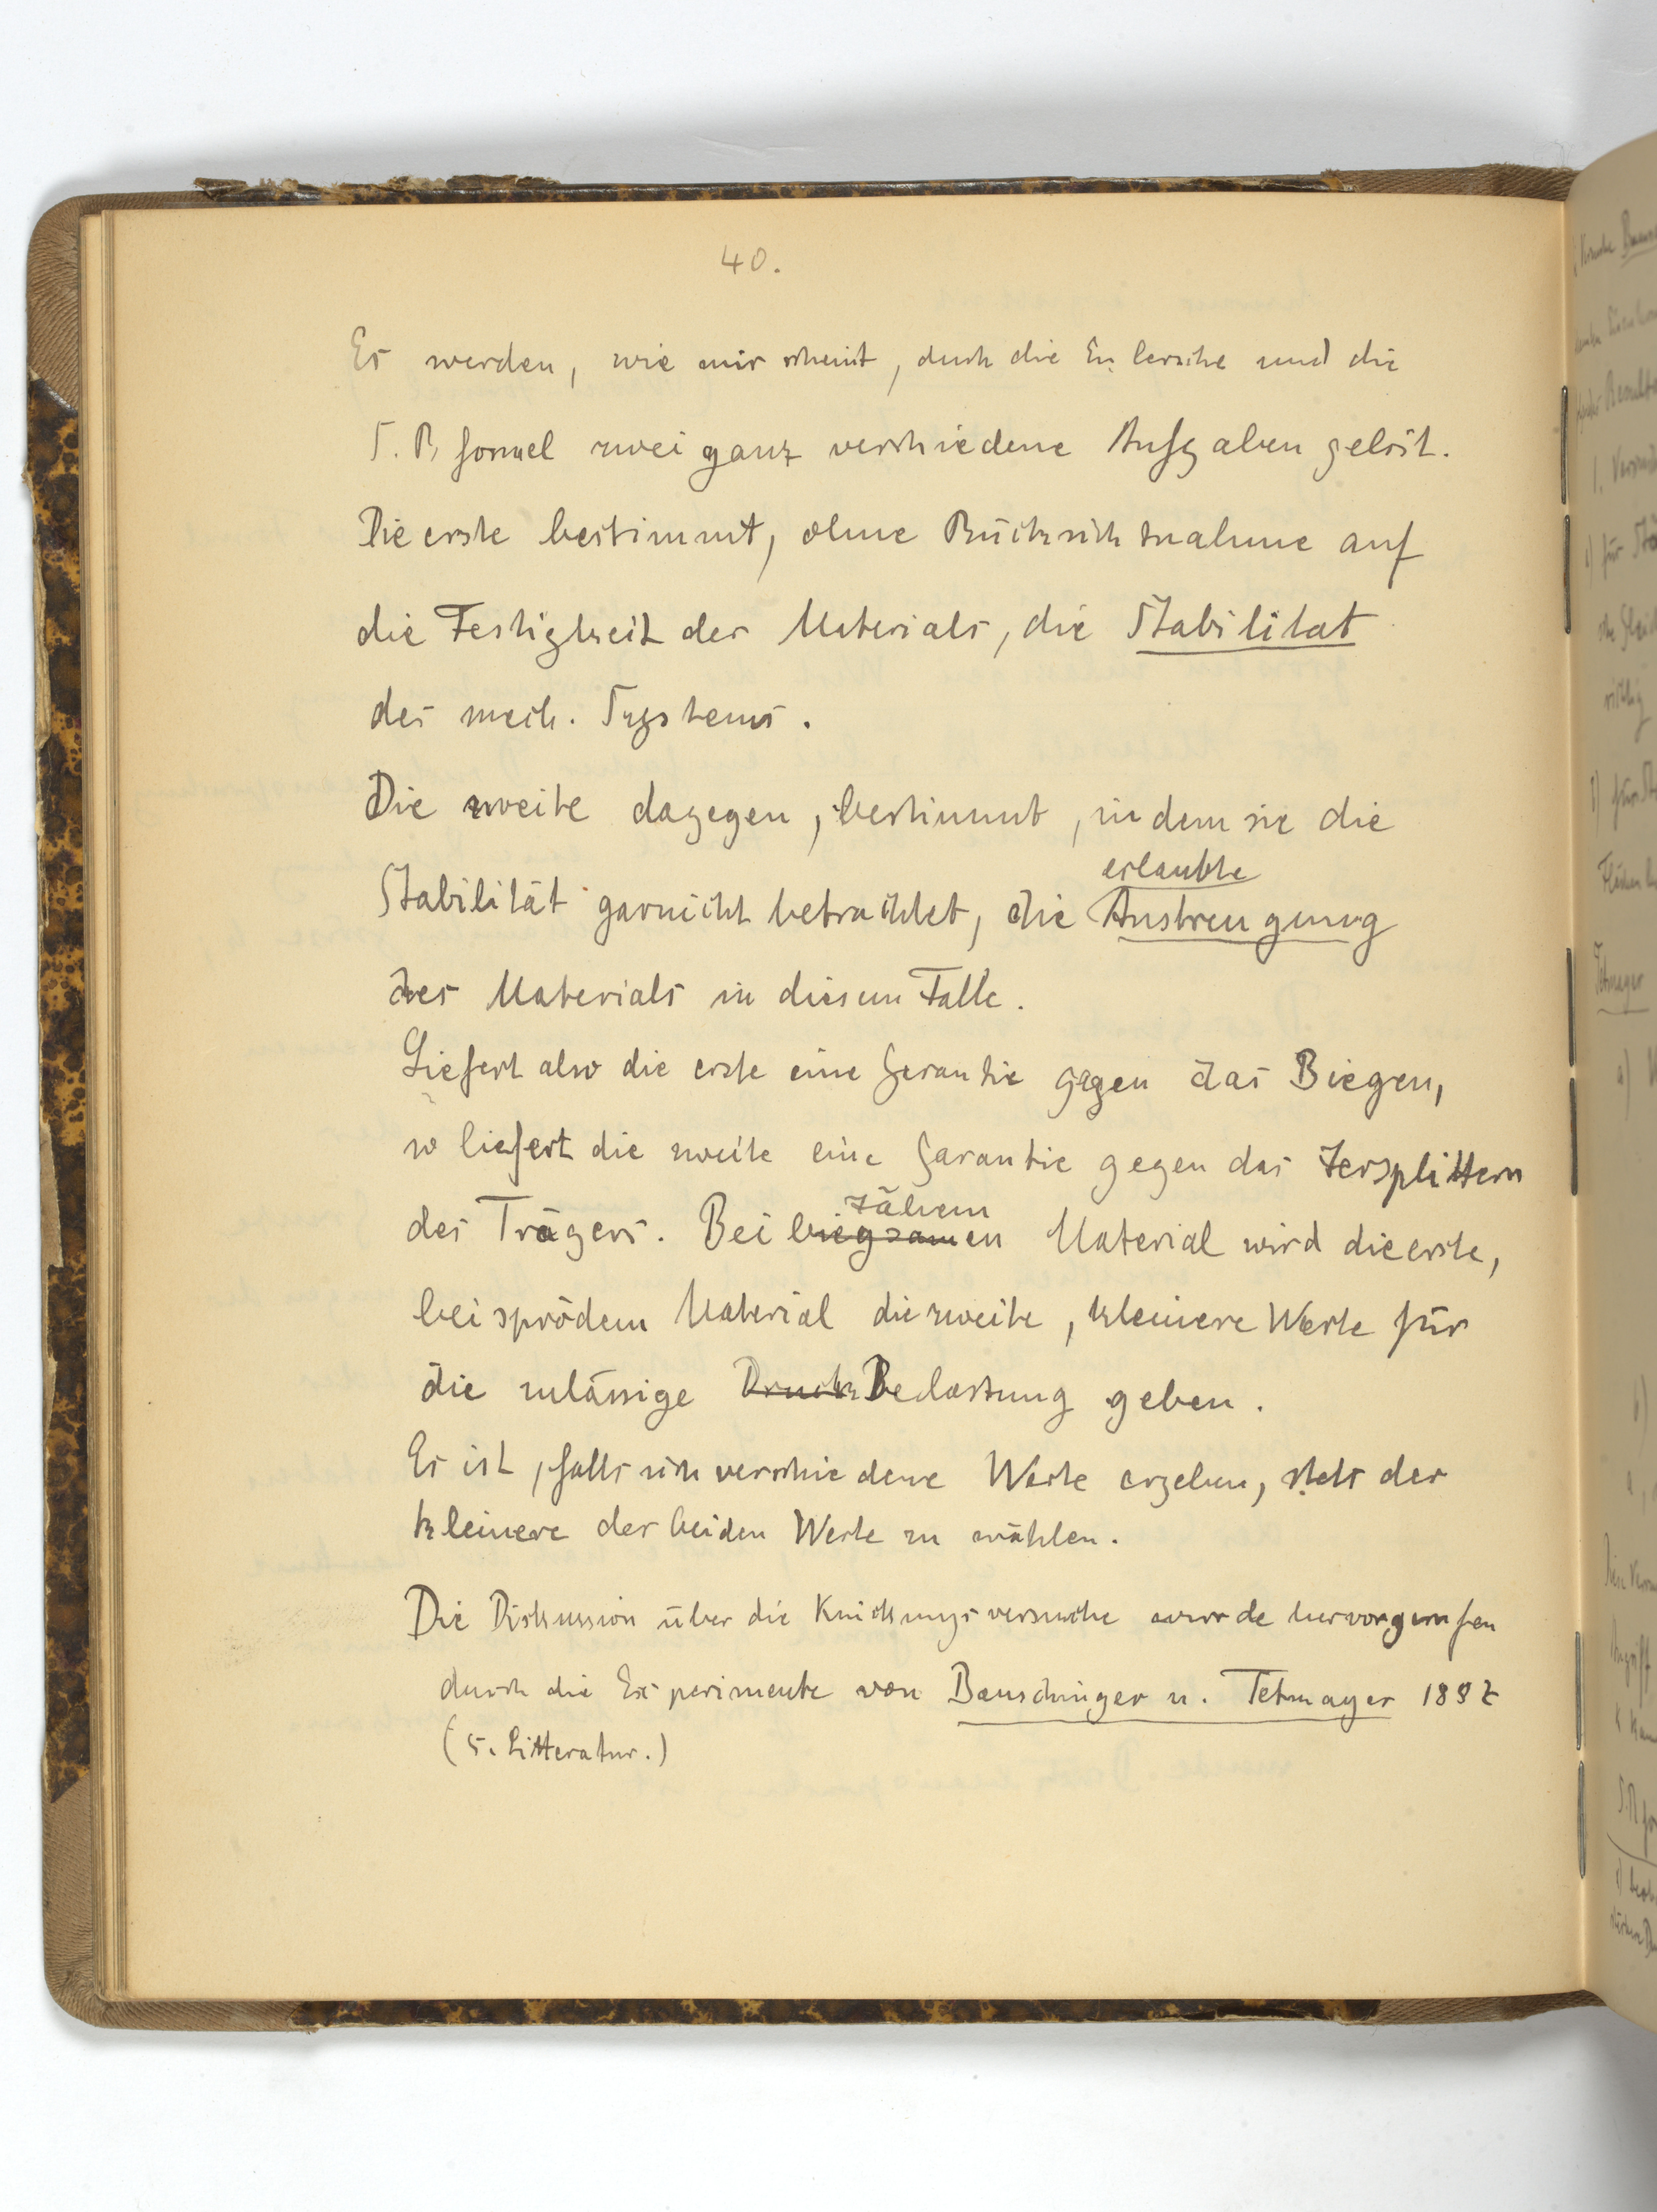 40.
Es werden, wie mir scheint, durch die Eulersche und die
S. R. formel zwei ganz verschiedene Aufgaben gelöst.
Die erste bestimmt, ohne Rücksichtnahme auf
die Festigkeit des Materials, die Stabilität
des mech. Systems.
Die zweite dagegen, bestimmt, indem sie die
Stabilität garnicht betrachtet, die erlaubte Anstrengung
des Materials in diesem Falle.
Liefert also die erste eine Garantie gegen das Biegen,
so liefert die zweite eine Garantie gegen das Zersplittern
des Trägers. Bei biegsamen zähem Material wird die erste,
bei sprödem Material die zweite, kleinere Werte für
die zulässige Druck Belastung geben.
Es ist, falls sich verschiedene Werte ergeben, stets der
kleinere der beiden Werte zu wählen.
Die Diskussion über die Knickungsversuche wurde hervorgerufen
durch die Experimente von Bauschinger u. Tetmayer 1887
(s. Litteratur.)